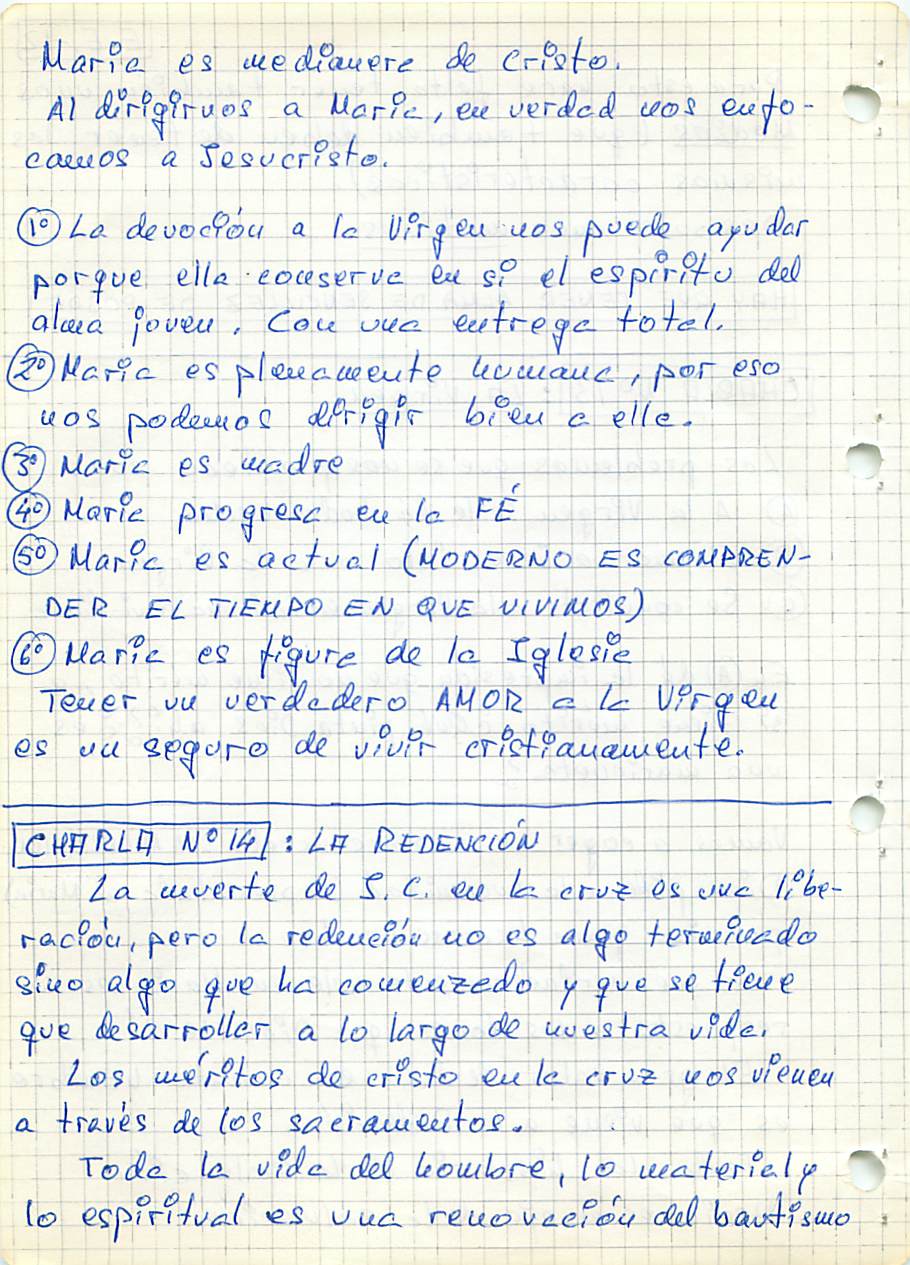 Maria es medianera de Cristo.
Al dirigirnos a Maria, en verdad nos enfo-
camos a Jesucristo.
1º La devoción a la Virgen nos puede ayudar
porque ella conserva en si el espiritu del
alma joven. Con una entrega total.
2º Maria es plenamente humana, por eso
nos podemos dirigir bien a ella.
3º Maria es madre
4º Maria progresa en la FÉ
5º Maria es actual (MODERNO ES COMPREN-
DER EL TIEMPO EN QUE VIVIMOS)
6º Maria es figura de la Iglesia
Tener un verdadero AMOR a la Virgen
es un seguro de vivir cristianamente.
CHARLA Nº 14: LA REDENCIÓN
La muerte de J. C. en la cruz es una libe-
ración, pero la redención no es algo terminado
sino algo que ha comenzado y que se tiene
que desarrollar a lo largo de nuestra vida.
Los méritos de cristo en la cruz nos vienen
a través de los sacramentos.
Toda la vida del hombre, lo material y
lo espiritual es una renovación del bautismo